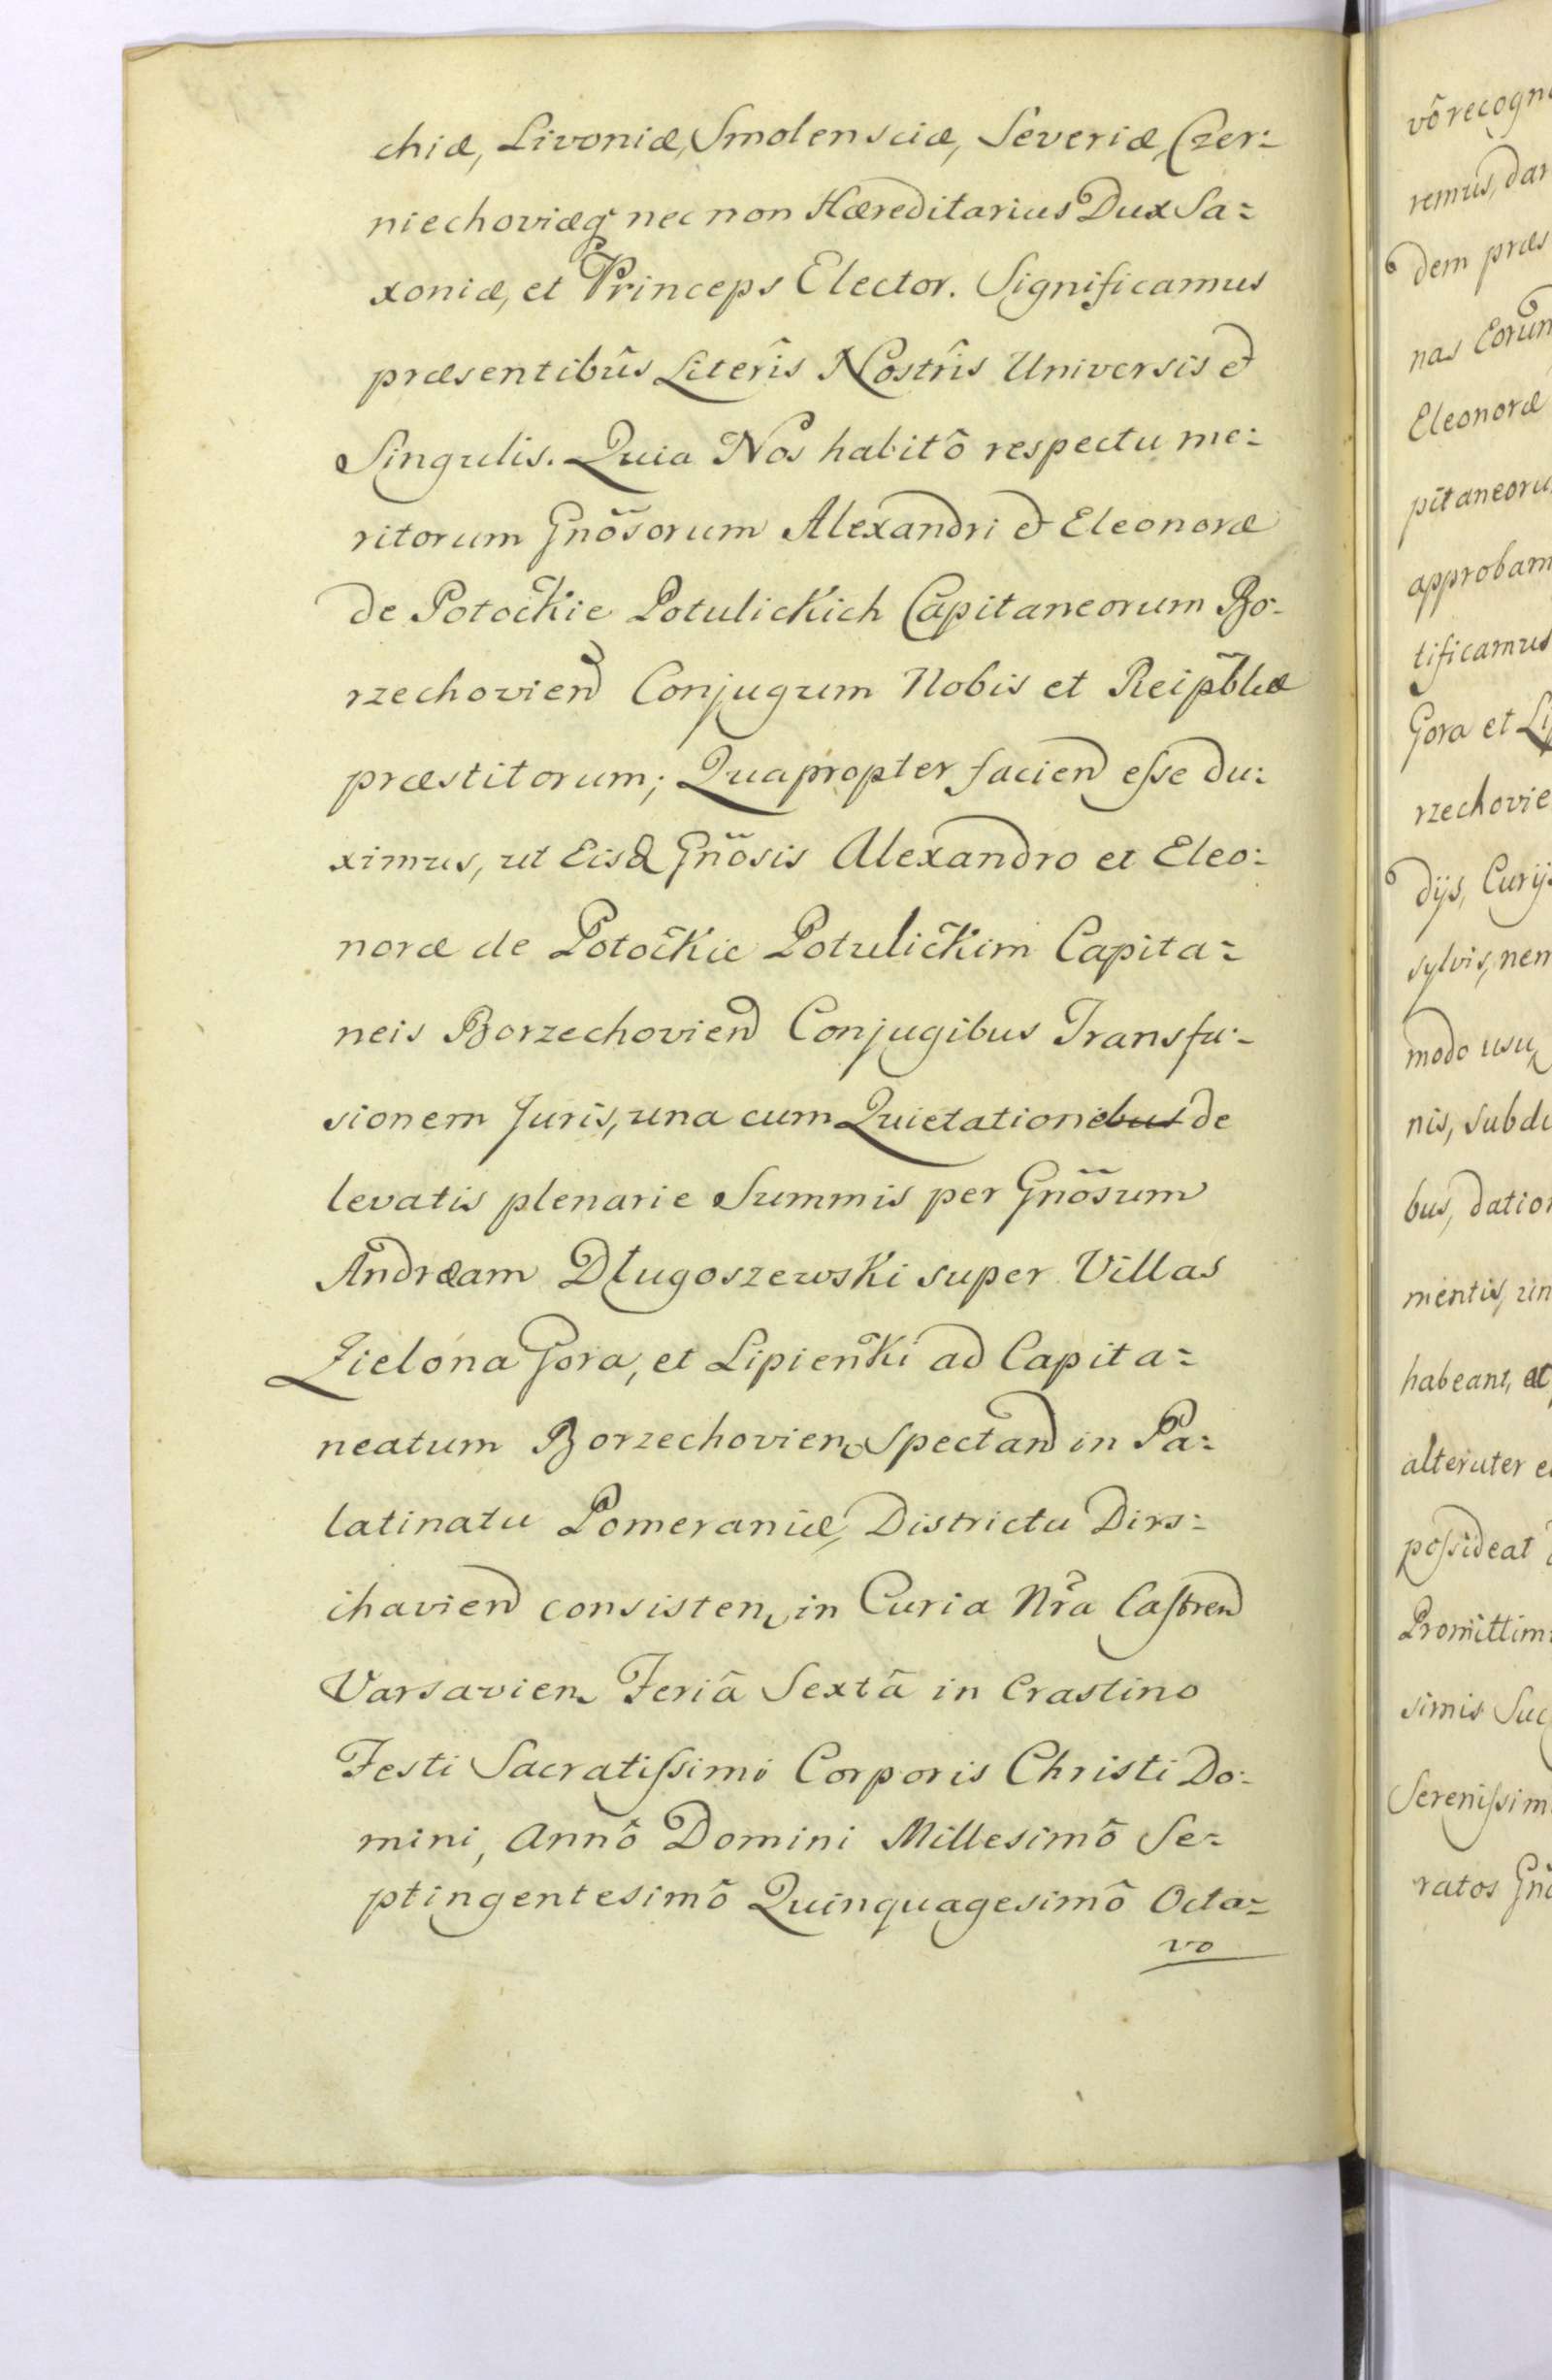 chiæ, Livoniæ, Smolensciæ, Severiæ, Czer:
niechoviæq nec non Hæreditarius Dux Sa:
xoniæ, et Princeps Elector. Significamus
præsentibûs Literîs Nostrîs Universis et
Singulis. Quia Nos habitô respectu me:
ritorum Gnõsorum Alexandri et Eleonoræ
de Potockie Potulickich Capitaneorum Bo:
rzechovien Conjugum Nobis et Reipblcæ
præstitorum; Quapropter facien eſse du:
ximus, ut Eisd Gnõsis Alexandro et Eleo:
noræ de Potockie Potulickim Capita:
neis Borzechovien Conjugibus Transfu:
sionem Juris, una cum Quietationibus de
levatis plenarie Summis per Gnõsum
Andræam Długoszewski super Villas
Zielona Gora, et Lipieńki ad Capita:
neatum Borzechovien Spectan in Pa:
latinatu Pomeraniæ, Districtu Dirs:
chavien consisten, in Curia Nrã Caſtren
Varsavien Feriâ Sextâ in Crastino
Festi Sacratiſsimi Corporis Christi Do:
mini, Annô Domini Millesimô Se:
ptingentesimô Quinquagesimô Octa:
vo
vô recogn
remus, dar
dem præs
nas Eorun
Eleonoræ
pitaneoru
approbam
tificamus
Gora et Lip
rzechovie
dijs, Curijs
sylvis, nem
modo usu
nis, subdi
bus, dation
mentis, un
habeant, et
alteruter e
poſsideat
Promittim
simis Suc
Sereniſsim
ratos Gnõ